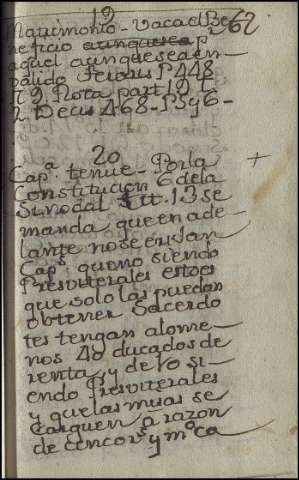 19
Matrimonio - vaca el Be 62
neficio aunquesea pr
aquel aunque sea in
valido Feriaus P 448
Rota part 19 t
2 Decis 468 - P5 y 6 -
20
Capa. tenue - Por la +
Constitucion 6 de la
Sinodal tit. 13 se
manda que en ade
lante no se erijan
Caps. que no siendo
Presviterales estoes
que solo las puedan
obtener Sacerdo
tes tengan alome
nos 40 ducados de
renta, y de lo si
endo Presviterales
y que las misas se
carguen a razon
de cinco rs. y mo ca